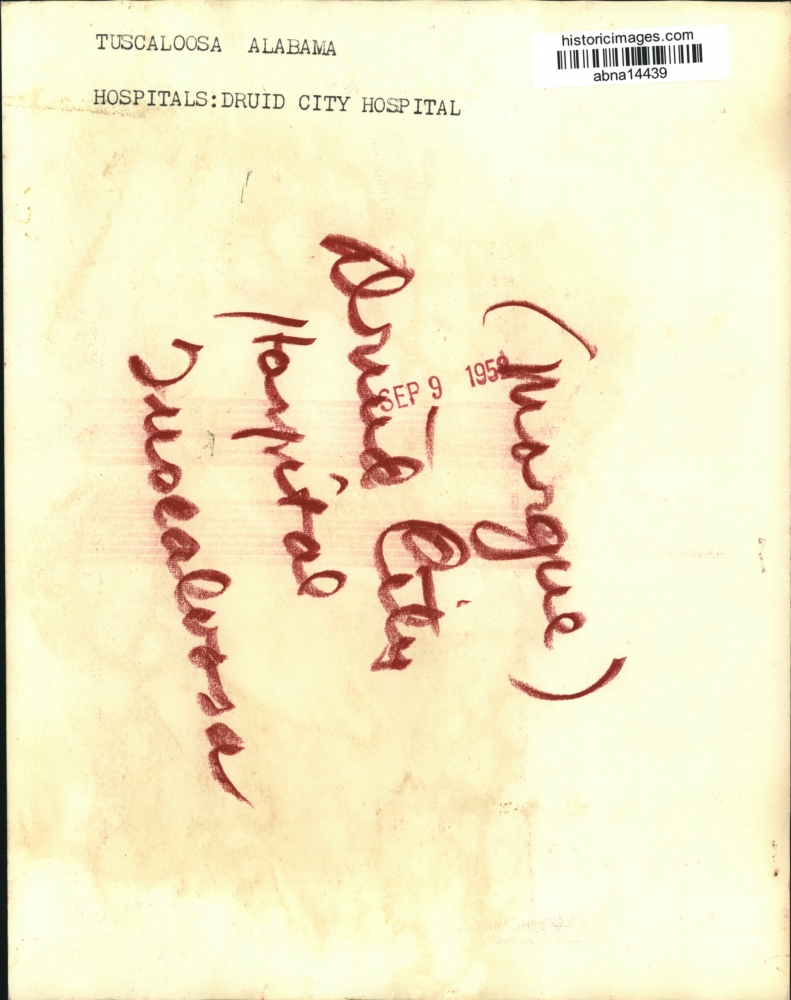 TUSCALOOSA ALABAMA
HOSPITALS:DRUID CITY HOSPITAL
historicimages.com
abna14439
(Morgue)
Druid City
Hospital
Tuscaloosa
SEP 9